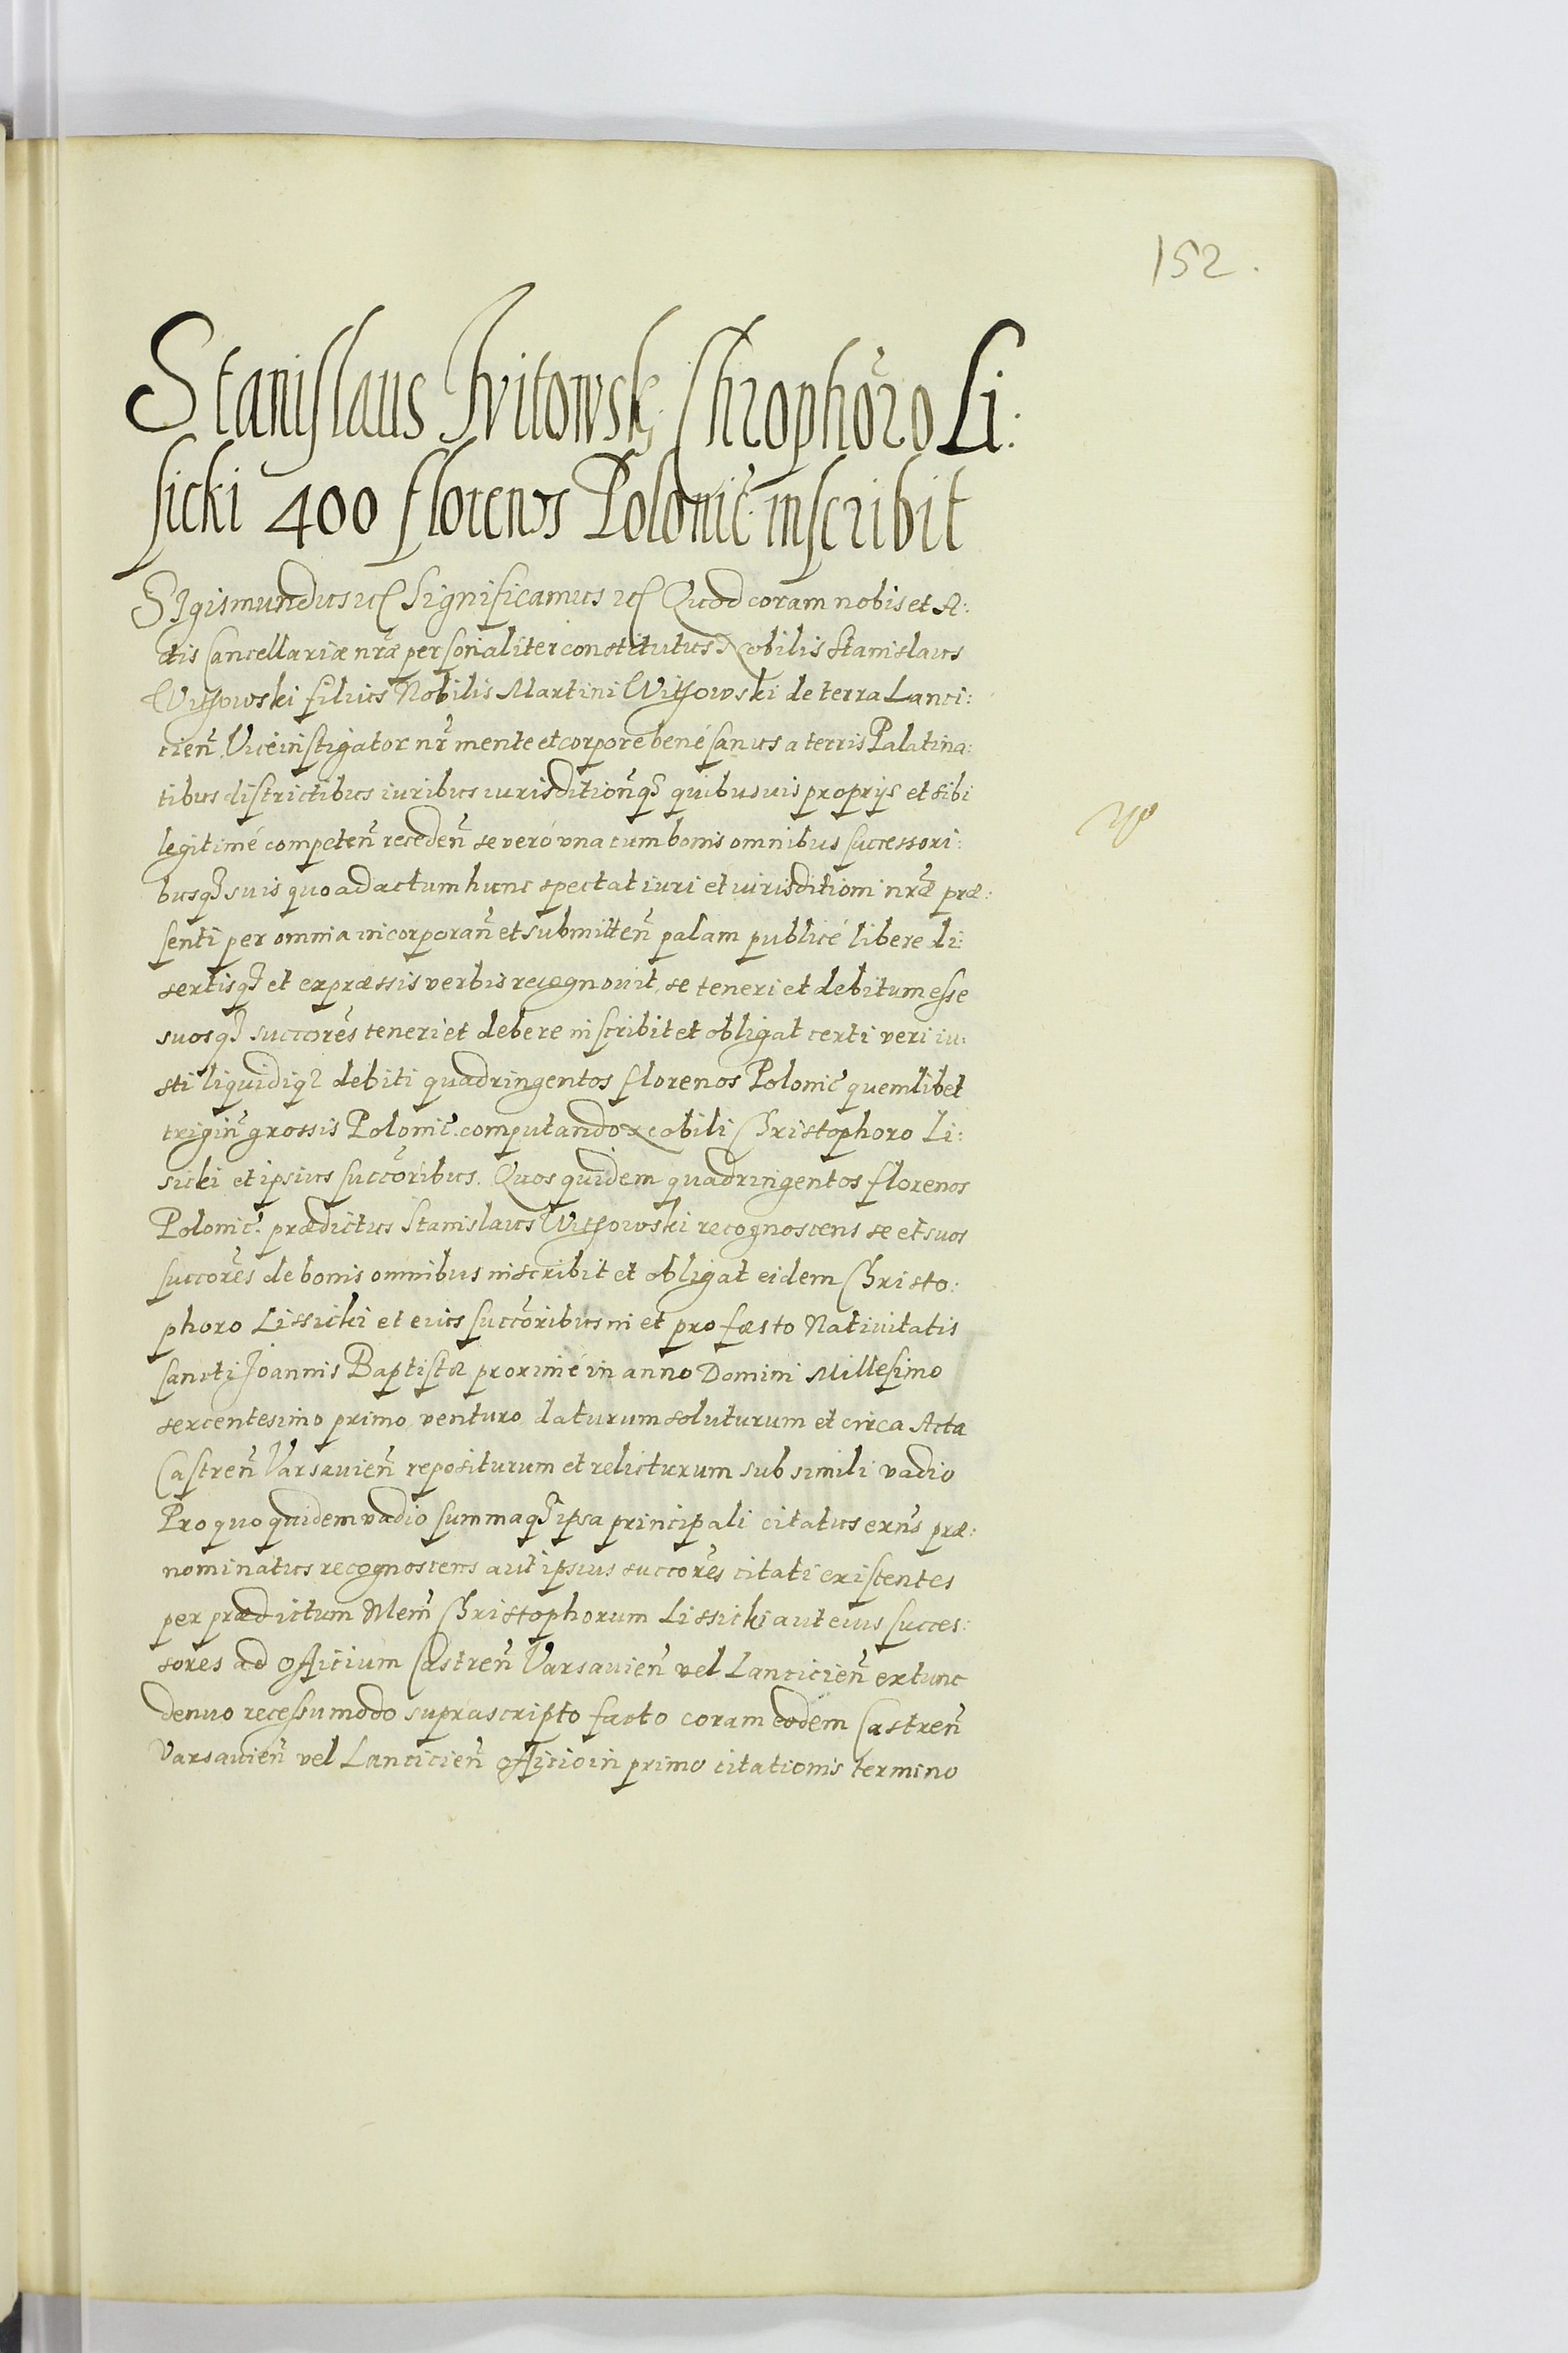 152.
Stanislaus Witowski Chrophõro Li:
sicki 400 florenos Polonic̃ inscribit
SIgismundus etc Significamus etc Quod coram nobis et A:
ctis Cancellariæ nr̃æ personaliter constitutus Nobilis Stanislaus
Witzowski filius Nobilis Martini Witzowski de terra Lanci:
cien̄. Viceinstigator nr̃ mente et corpore bené sanus a terris Palatina:
tibus districtibus iuribus iurisdition̄qʒ quibusuis proprijs et sibi
legitimé competen̄ receden̄ se veró vna cum bonis omnibus successori:
busqʒ suis quo ad actum hunc spectat iuri et iurisditioni nr̃æ præ:
senti per omnia incorporan̄ et submitten̄ palam publicé libere di:
sertisqʒ et expræssis verbis recognouit, se teneri et debitum esse
suosqʒ succorẽs teneri et debere inscribit et obligat certi veri iu:
sti liquidiqʒ debiti quadringentos florenos Polonic̃ quemlibet
trigin̄ grossis Polonic̃. computando Nobili Christophoro Li:
sicki et ipsius succõribus. Quos quidem quadringentos florenos
Polonic̃. prædictus Stanislaus Witzowski recognoscens se et suos
succorẽs de bonis omnibus inscribit et obligat eidem Christo:
phoro Lissicki et eius succõribus in et pro fæsto Natiuitatis
Sancti Joannis Baptistæ proximé in anno Domini Millesimo
sexcentesimo primo venturo daturum soluturum et circa Acta
Castren̄ Varsauien̄ repositurum et relicturum sub simili vadio
Pro quo quidem vadio summaqʒ ipsa principali citatus exn̄s præ:
nominatus recognoscens aut ipsius succorẽs citati existentes
per prædictum Nlem̃ Christophorum Lissicki aut eius succes:
sores ad officium Castren̄ Varsauien̄ vel Lancicien̄ extunc
denuo recessu modo suprascripto facto coram eodem Castren̄
Varsauien̄ vel Lancicien̄ officio in primo citationis termino